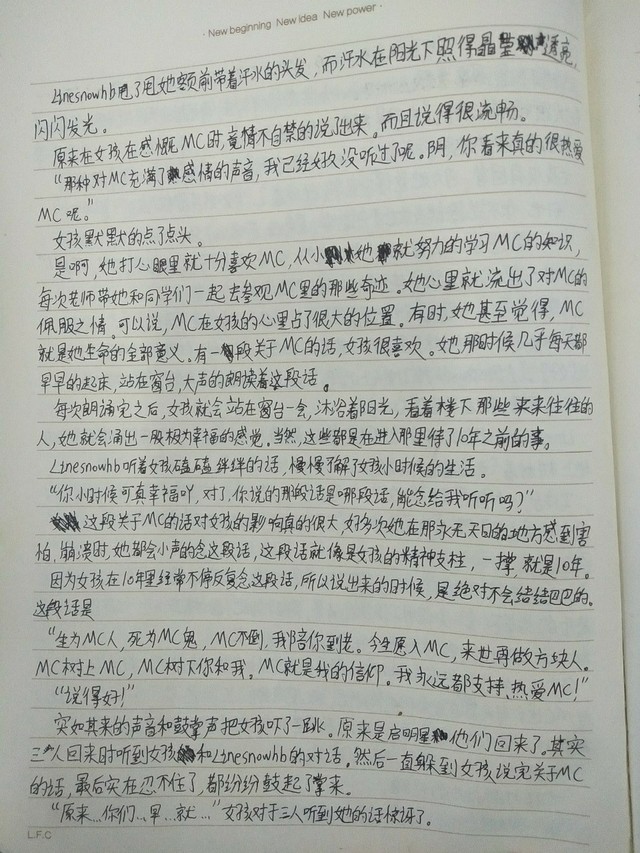 · New beginning New Idea New power ·
Linesnowhb甩了甩她额前带着汗水的头发，而汗水在阳光下照得晶莹透亮，
闪闪发光。
原来在女孩在感慨MC时，竟情不自禁的说了出来。而且说得很流畅。
“那种对MC充满了感情的声音，我已经好久没听过了呢。阴，你看来真的很热爱
MC呢。”
女孩默默的点了点头。
是啊，她打心眼里就十分喜欢MC，从小她就努力的学习MC的知识，
每次老师带她和同学们一起去参观MC里的那些奇迹。她心里就流出了对MC的
佩服之情。可以说，MC在女孩的心里占了很大的位置。有时，她甚至觉得，MC
就是她生命的全部意义。有一段关于MC的话，女孩很喜欢。她那时候几乎每天都
早早的起床，站在窗台，大声的朗读着这段话。
每次朗诵完之后，女孩就会站在窗台一会，沐浴着阳光，看着楼下那些来来往往的
人，她就会涌出一股极为幸福的感觉。当然，这些都是在进入那里待了10年之前的事。
Linesnowhb听着女孩磕磕绊绊的话，慢慢了解了女孩小时候的生活。
“你小时候可真幸福吖，对了，你说的那段话是哪段话，能念给我听听吗？”
这段关于MC的话对女孩的影响真的很大，好多次她在那永无天日的地方感到害
怕、崩溃时，她都会小声的念这段话，这段话就像是女孩的精神支柱，一撑，就是10年。
因为女孩在10年里经常不停反复念这段话，所以说出来的时候，是绝对不会结结巴巴的。
这段话是
“生为MC人，死为MC鬼，MC不倒，我陪你到老。今生愿入MC，来世再做方块人。
MC树上MC，MC树下你和我。MC就是我的信仰。我永远都支持、热爱MC！”
“说得好！”
突如其来的声音和鼓掌声把女孩吓了一跳。原来是启明星他们回来了。其实
三人回来时听到女孩和Linesnowhb的对话。然后一直躲到女孩说完关于MC
的话，最后实在忍不住了，都纷纷鼓起了掌来。
“原来…你们…早…就…”女孩对于三人听到她的话惊讶了。
L.F.C